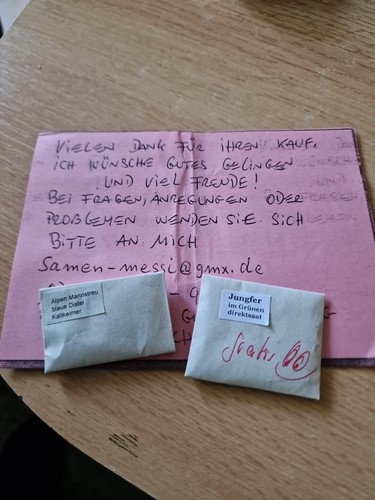 VIELEN DANK FÜR IHREN KAUF.
ICH WÜNSCHE GUTES GELINGEN
UND VIEL FREUDE!
BEI FRAGEN, ANREGUNGEN ODER
PROBLEMEN WENDEN SIE SICH
BITTE AN MICH
Samen-messi@gmx.de
Alpen Mannstreu
blaue Distel
Kaltkeimer
Jungfer
im Grünen
direktsaat
gratis